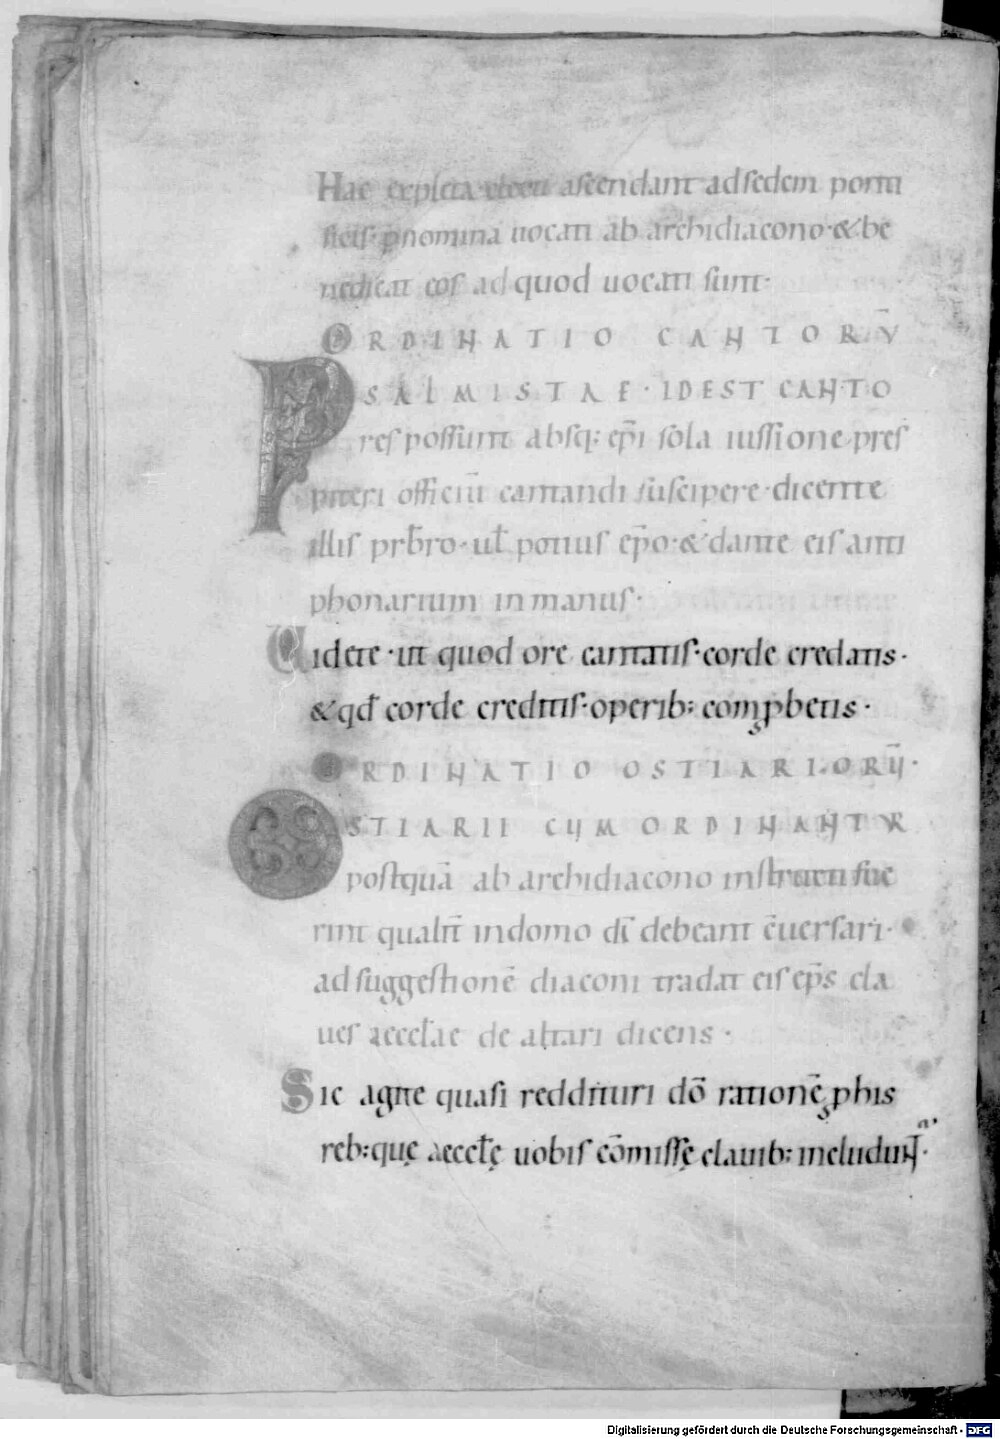 Hac expleta electi ascendant ad sedem ponti
ficis· p̄nomina uocati ab archidiacono·& be
nedicat eos ad quod uocati sunt·
ORDINATIO CANTORV̄
PSALMISTAE·IDEST CANTO
res possunt absq; ep̄i sola iussione pres
piteri officiū cantandi suscipere·dicente
illis prb̄ro·ul̄ potius ep̄o·& dante eis anti
phonarium in manus·
Uidete·ut quod ore cantatis·corde credatis·
& qd̄ corde creditis·operib; comp̱betis·
ORDINATIO OSTIARIORŪ·
OSTIARII CUM ORDINANTUR
postquā ab archidiacono instructi fue
rint qualit̄ in domo dī debeant c̄uersari·
ad suggestionē diaconi tradat eis ep̄s cla
ues aeccl̄ae de altari dicens·
Sic agite quasi reddituri dō rationē p his
reb; quę aeccl̄ę uobis cōmissę clauib; includunt̄·